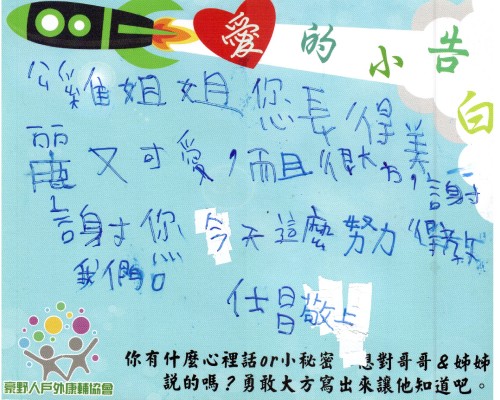 愛的小告白
姐姐您長得美
麗又可愛,而且很大方,謝
謝你今天這麼努力得教
我們
仕昌敬上
豪野人戶外康輔協會
你有什麼心裡話or小秘密 想對哥哥&姊姊
說的嗎?勇敢大方寫出來讓他知道吧。